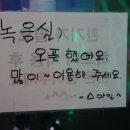 녹음실)
오픈 했어요.
많이~ 이용해 주세요